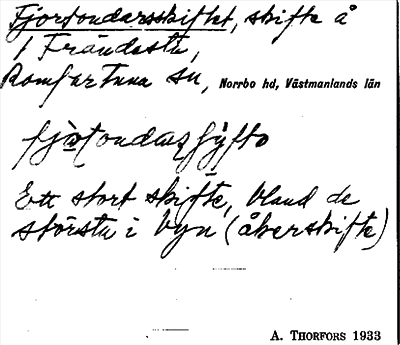 Fjortondarsskiftet, skifte å
1 Frändesta,
Romfartuna sn, Norrbo hd, Västmanlands län
Ett stort skifte, bland de
största i byn (åkerskifte)
A. THORFORS 1933